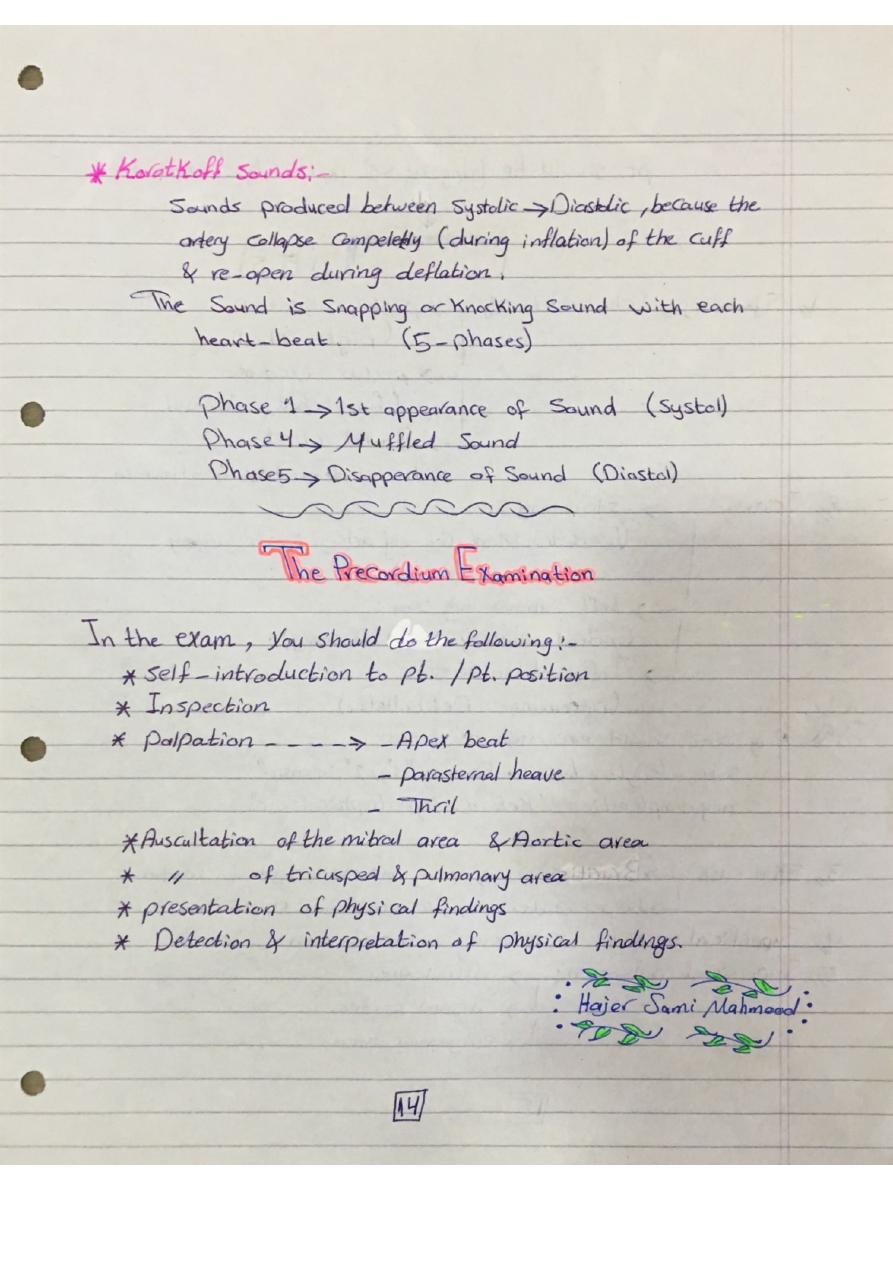 * Korotkoff Sounds:-
Sounds produced between Systolic → Diastolic, because the
artery collapse compeletly (during inflation) of the cuff
& re-open during deflation.
The Sound is Snapping or Knocking Sound with each
heart-beat. (5-phases)
Phase 1 → 1st appearance of Sound (Systol)
Phase 4 → Muffled Sound
Phase 5 → Disapperance of Sound (Diastol)
The Precordium Examination
In the exam, you should do the following:-
* Self-introduction to pt. / pt. position
* Inspection
* palpation ----> - Apex beat
- parasternal heave
- Thril
* Auscultation of the mitral area & Aortic area
* " of tricusped & pulmonary area
* presentation of physical findings
* Detection & interpretation of physical findings.
Hajer Sami Mahmood
14